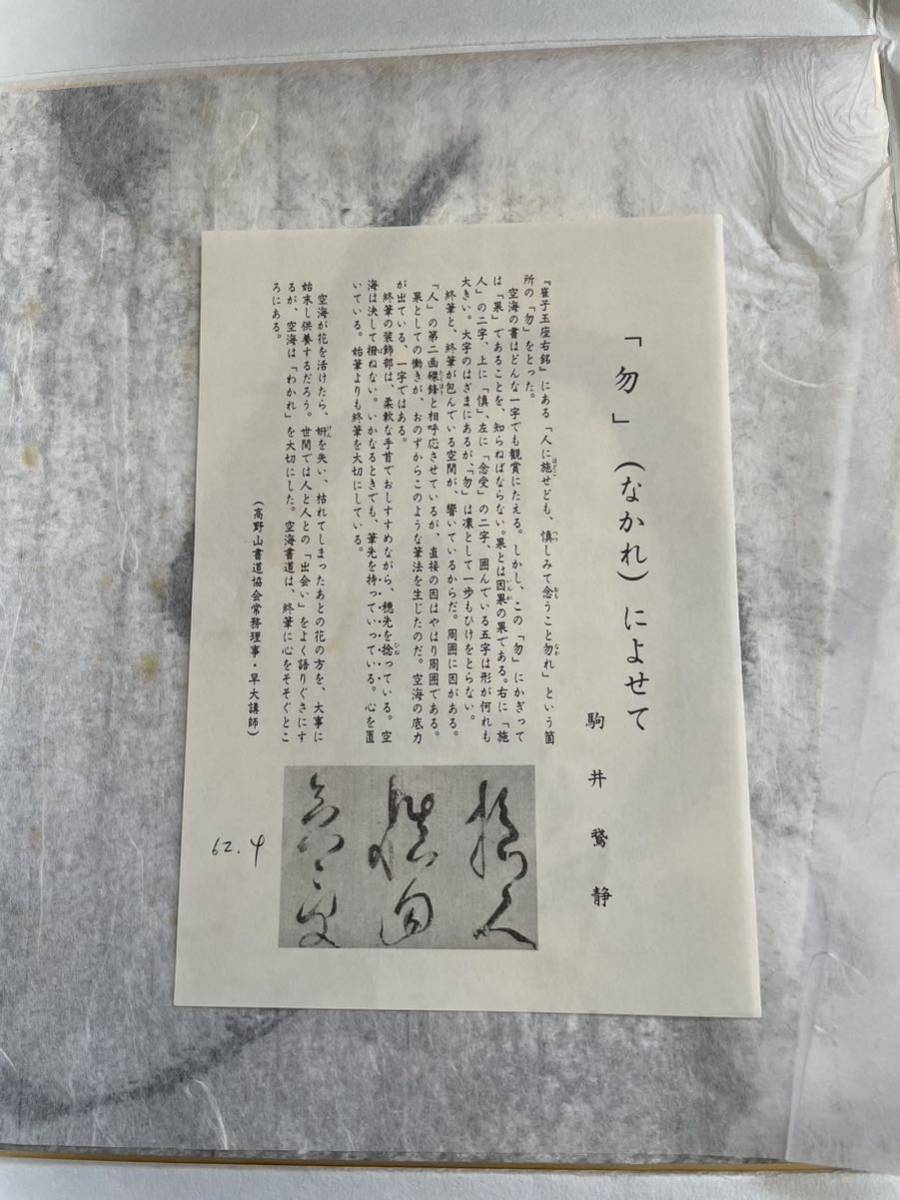 「勿」(なかれ)によせて
駒井鵞静
『崔子玉座右銘』にある「人に施せども、慎しみて念うこと勿れ」という箇
所の「勿」をとった。
空海の書はどんな一字でも観賞にたえる。しかし、この「勿」にかぎって
は「果」であることを、知らねばならない。果とは因果の果である。右に「施
人」の二字、上に「慎」、左に「念受」の二字、囲んでいる五字は形が何れも
大きい。大字のはざまにあるが、「勿」は凛として一歩もひけをとらない。
終筆と、終筆が包んでいる空間が、響いているからだ。周囲に因がある。
「人」の第二画磔鋒と相呼応させているが、直接の因はやはり周囲である。
果としての働きが、おのずからこのような筆法を生じたのだ。空海の底力
が出ている、一字ではある。
終筆の装飾部は、柔軟な手首でおしすすめながら、穂先を捻っている。空
海は決して撥ねない。いかなるときでも、筆先を持っていっている。心を置
いている。始筆よりも終筆を大切にしている。
空海が花を活けたら、妍を失い、枯れてしまったあとの花の方を、大事に
始末し供養するだろう。世間では人と人との「出会い」をよく語りぐさにす
るが、空海は「わかれ」を大切にした。空海書道は、終筆に心をそそぐとこ
ろにある。
(高野山書道協会常務理事・早大講師)
施人
慎勿
念受
62.4